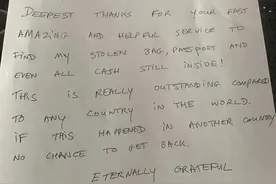 DEEPEST THANKS FOR YOUR FAST
AMAZING AND HELPFUL SERVICE TO
FIND MY STOLEN BAG, PASSPORT AND
EVEN ALL CASH STILL INSIDE!
THIS IS REALLY OUTSTANDING COMPARED
TO ANY COUNTRY IN THE WORLD.
IF THIS HAPPENED IN ANOTHER COUNTRY
NO CHANCE TO GET BACK.
ETERNALLY GRATEFUL